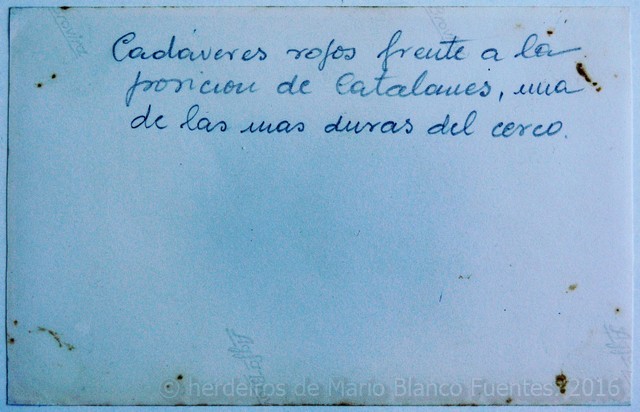 Cadáveres rojos frente a la
posición de Catalanes, una
de las mas duras del cerco.
© herdeiros de Mario Blanco Fuentes. 2016